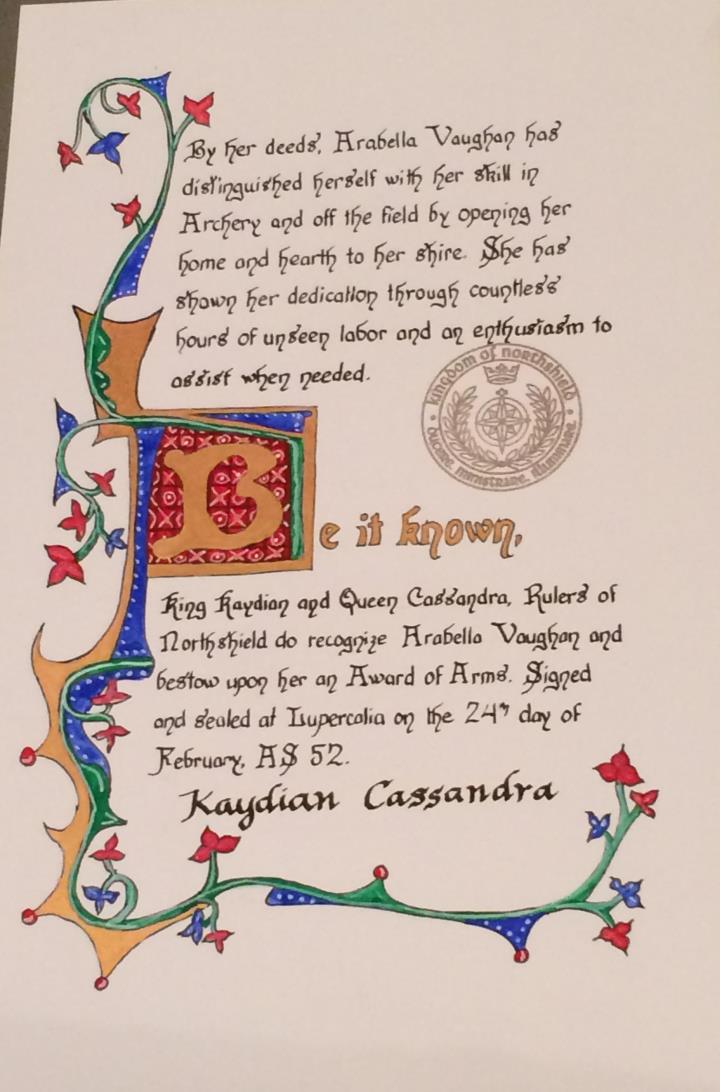 By her deeds, Arabella Vaughan has
distinguished herself with her skill in
Archery and off the field by opening her
home and hearth to her shire. She has
shown her dedication through countless
hours of unseen labor and an enthusiasm to
assist when needed.
kingdom of northshield
ducere, ministrare, illuminare.
Be it known,
King Kaydian and Queen Cassandra, Rulers of
Northshield do recognize Arabella Vaughan and
bestow upon her an Award of Arms. Signed
and sealed at Lupercalia on the 24th day of
February, AS 52.
Kaydian Cassandra